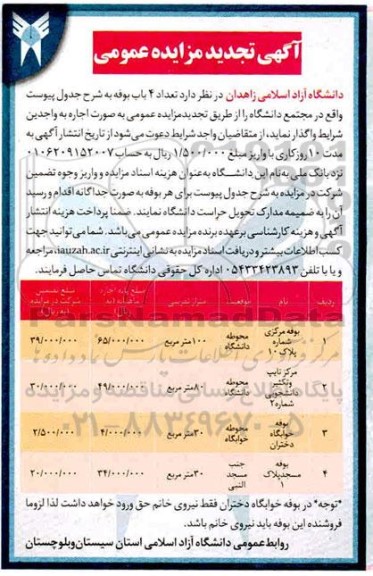 آگهی تجدید مزایده عمومی
دانشگاه آزاد اسلامی زاهدان در نظر دارد تعداد ۴ باب بوفه به شرح جدول پیوست
واقع در مجتمع دانشگاه را از طریق تجدیدمزایده عمومی به صورت اجاره به واجدین
شرایط واگذار نماید، از متقاضیان واجد شرایط دعوت می‌شود از تاریخ انتشار آگهی به
مدت ۱۰ روز کاری با واریز مبلغ ۱/۵۰۰/۰۰۰ ریال به حساب ۰۱۰۶۲۰۹۱۵۲۰۰۷
نزد بانک ملی به‌نام این دانشگاه به‌عنوان هزینه اسناد مزایده و واریز وجوه تضمین
شرکت در مزایده به شرح جدول پیوست برای هر بوفه به صورت جداگانه اقدام و رسید
آن را به ضمیمه مدارک تحویل حراست دانشگاه نمایند. ضمنا پرداخت هزینه انتشار
آگهی و هزینه کارشناسی برعهده برنده مزایده عمومی می‌باشد. شما می‌توانید جهت
کسب اطلاعات بیشتر و دریافت اسناد مزایده به نشانی اینترنتی iauzah.ac.ir مراجعه
و یا با تلفن ۰۵۴۳۳۴۲۳۸۹۳ اداره کل حقوقی دانشگاه تماس حاصل فرمایند.
ردیف نام موقعیت متراژ تقریبی مبلغ پایه اجاره ماهیانه (به ریال) مبلغ تضمین شرکت در مزایده (به ریال)
۱ بوفه مرکزی شماره ۱ پلاک ۱۰ محوطه دانشگاه ۱۰۰ متر مربع ۶۵/۰۰۰/۰۰۰ ۳۹/۰۰۰/۰۰۰
۲ مرکز تایپ وتکثیر دانشجویی شماره ۲ محوطه دانشگاه ۸۰ متر مربع ۴۹/۰۰۰/۰۰۰ ۳۰/۰۰۰/۰۰۰
۳ بوفه خوابگاه دختران محوطه خوابگاه ۳۰ متر مربع ۴/۰۰۰/۰۰۰ ۲/۵۰۰/۰۰۰
۴ بوفه مسجدپلاک ۱ جنب مسجد النبی ۳۰ متر مربع ۳۴/۰۰۰/۰۰۰ ۲۰/۰۰۰/۰۰۰
*توجه* در بوفه خوابگاه دختران فقط نیروی خانم حق ورود خواهد داشت لذا لزوما
فروشنده این بوفه باید نیروی خانم باشد.
روابط عمومی دانشگاه آزاد اسلامی استان سیستان‌وبلوچستان
ParsNamadData
پایگاه اطلاع رسانی مناقصه و مزایده
۰۲۱-۸۸۳۴۹۶۷۰-۵